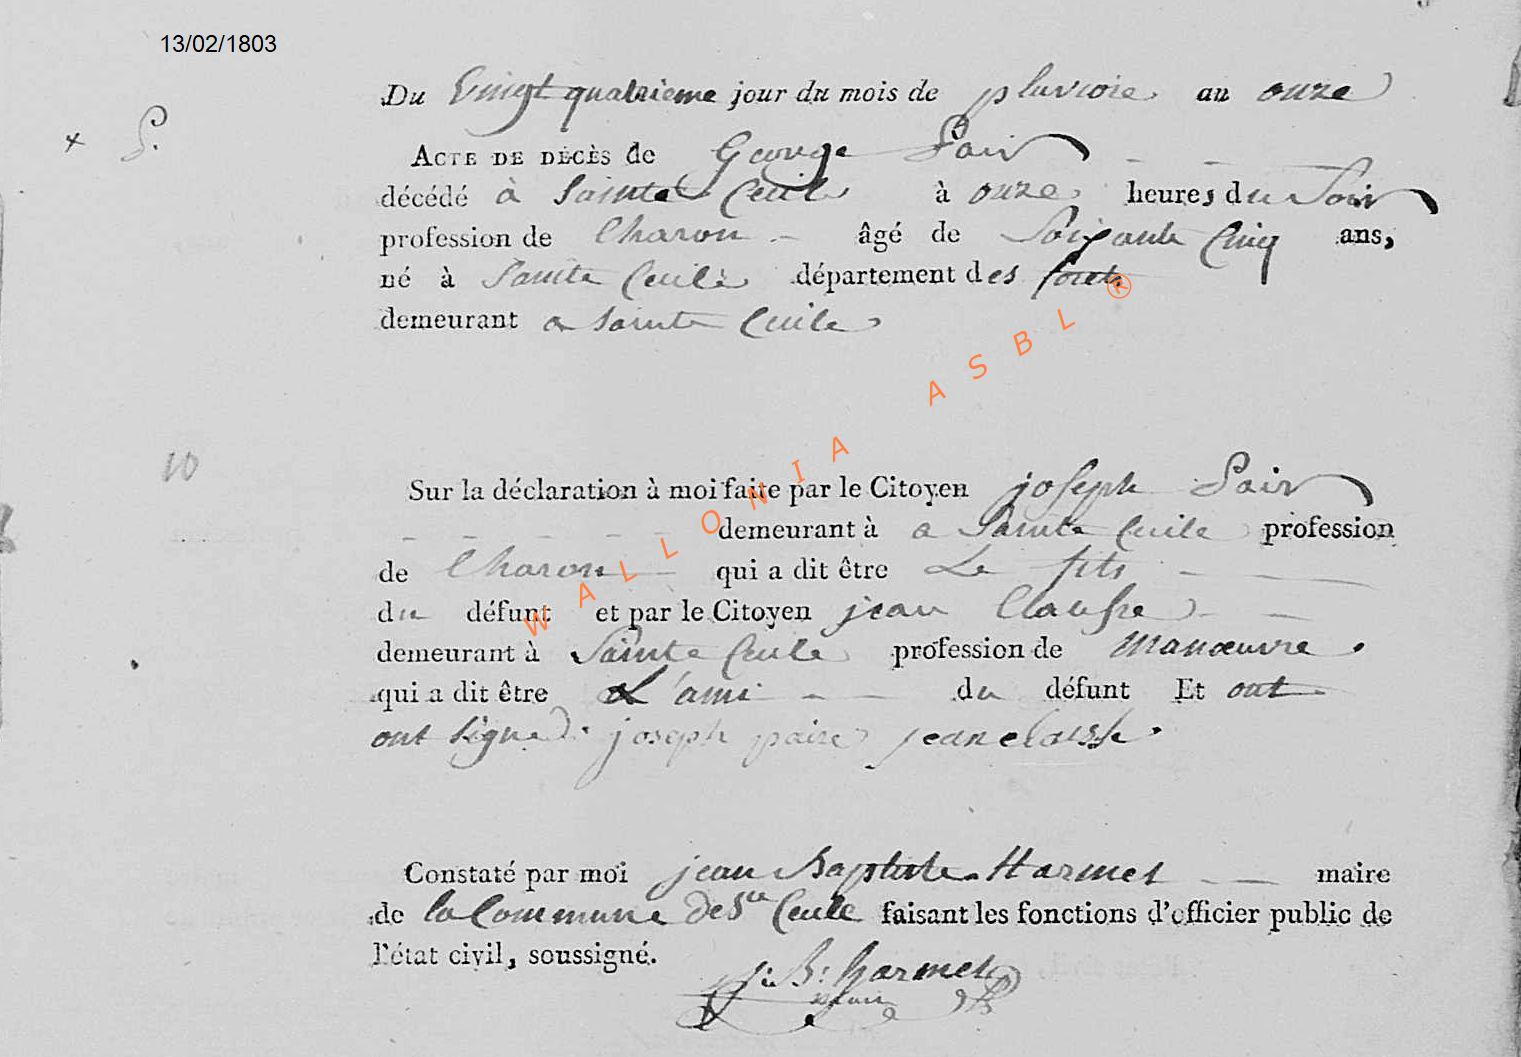 13/02/1803
Du Vingt quatrieme jour du mois de pluviose an onze
+ P.
ACTE DE DÉCÈS de George Pair
décédé à Sainte Cecile à onze heures du Soir
profession de Charon âgé de Soixante Cinq ans,
né à Sainte Cecile département des forets
demeurant a Sainte Cecile
10
Sur la déclaration à moi faite par le Citoyen joseph Pair
demeurant à a Sainte Cecile profession
de Charon qui a dit être Le fils
du défunt et par le Citoyen jean Clausse
demeurant à Sainte Cecile profession de manœuvre.
qui a dit être L'ami du défunt Et ont
ont Signé. joseph paire jean clausse.
Constaté par moi jean Baptiste Harmel maire
de la Commune de Ste Cecile faisant les fonctions d'officier public de
l'état civil, soussigné.
J: B: harmel
maire
WALLONIA ASBL ®